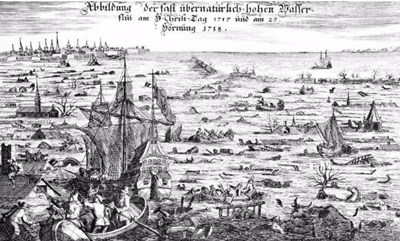 Abbildung der fast übernatürlich-hohen Wasser-
flut am H Christ-Tag 1717 und am 25
Hornung 1718.